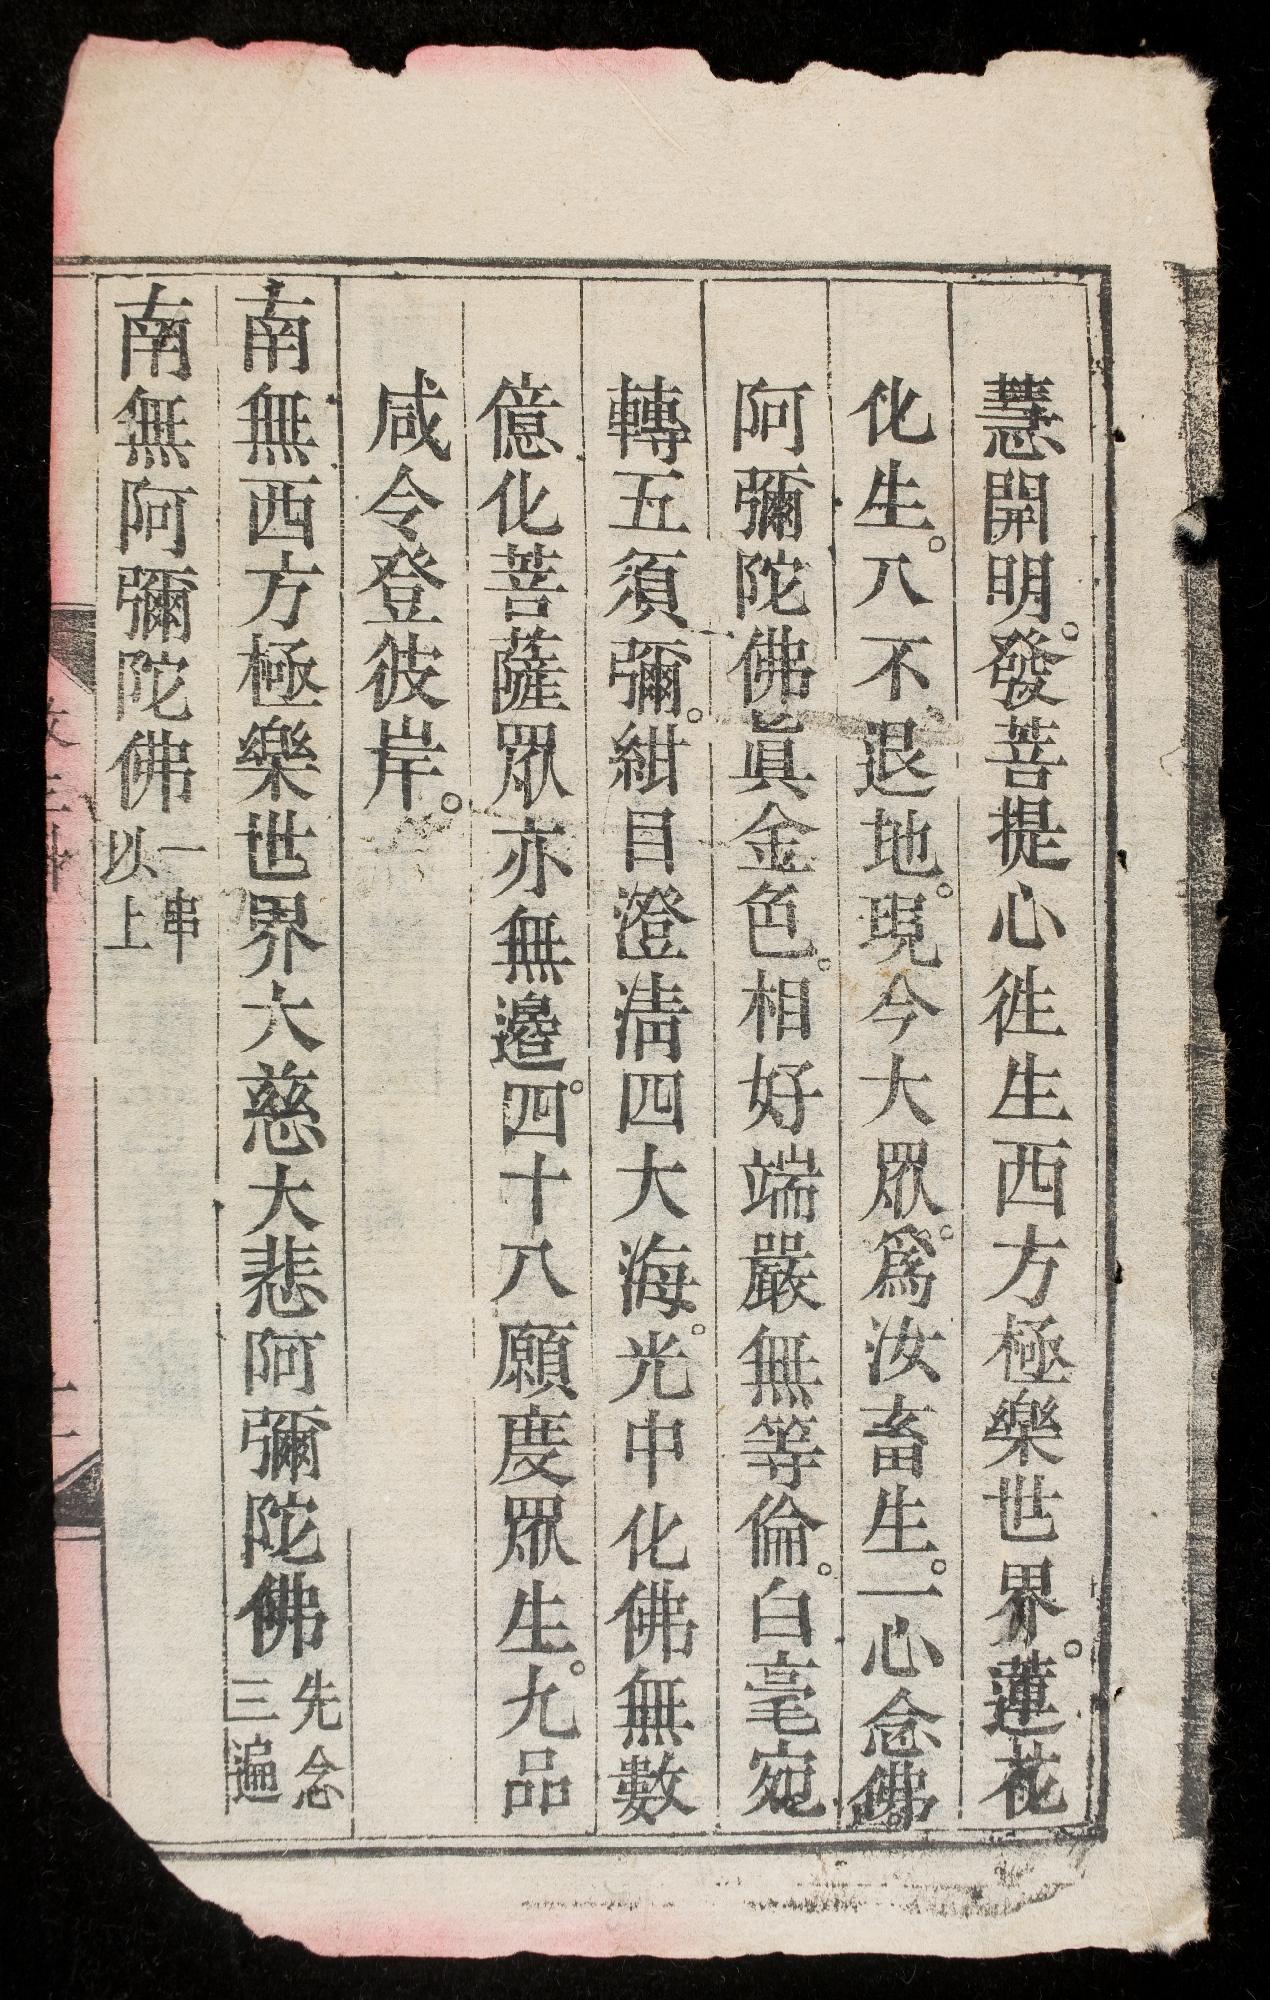 慧開明。發菩提心徃生西方極樂世界。蓮花
化生。八不退地。現今大眾。爲汝畜生。一心念佛。
阿彌陀佛眞金色。相好端嚴無等倫。白毫宛
轉五須彌。紺目澄淸四大海。光中化佛無數
億化菩薩眾亦無邊。四十八願度眾生。九品
咸令登彼岸。
南無西方極樂世界大慈大悲阿彌陀佛先念三遍
南無阿彌陀佛一串以上